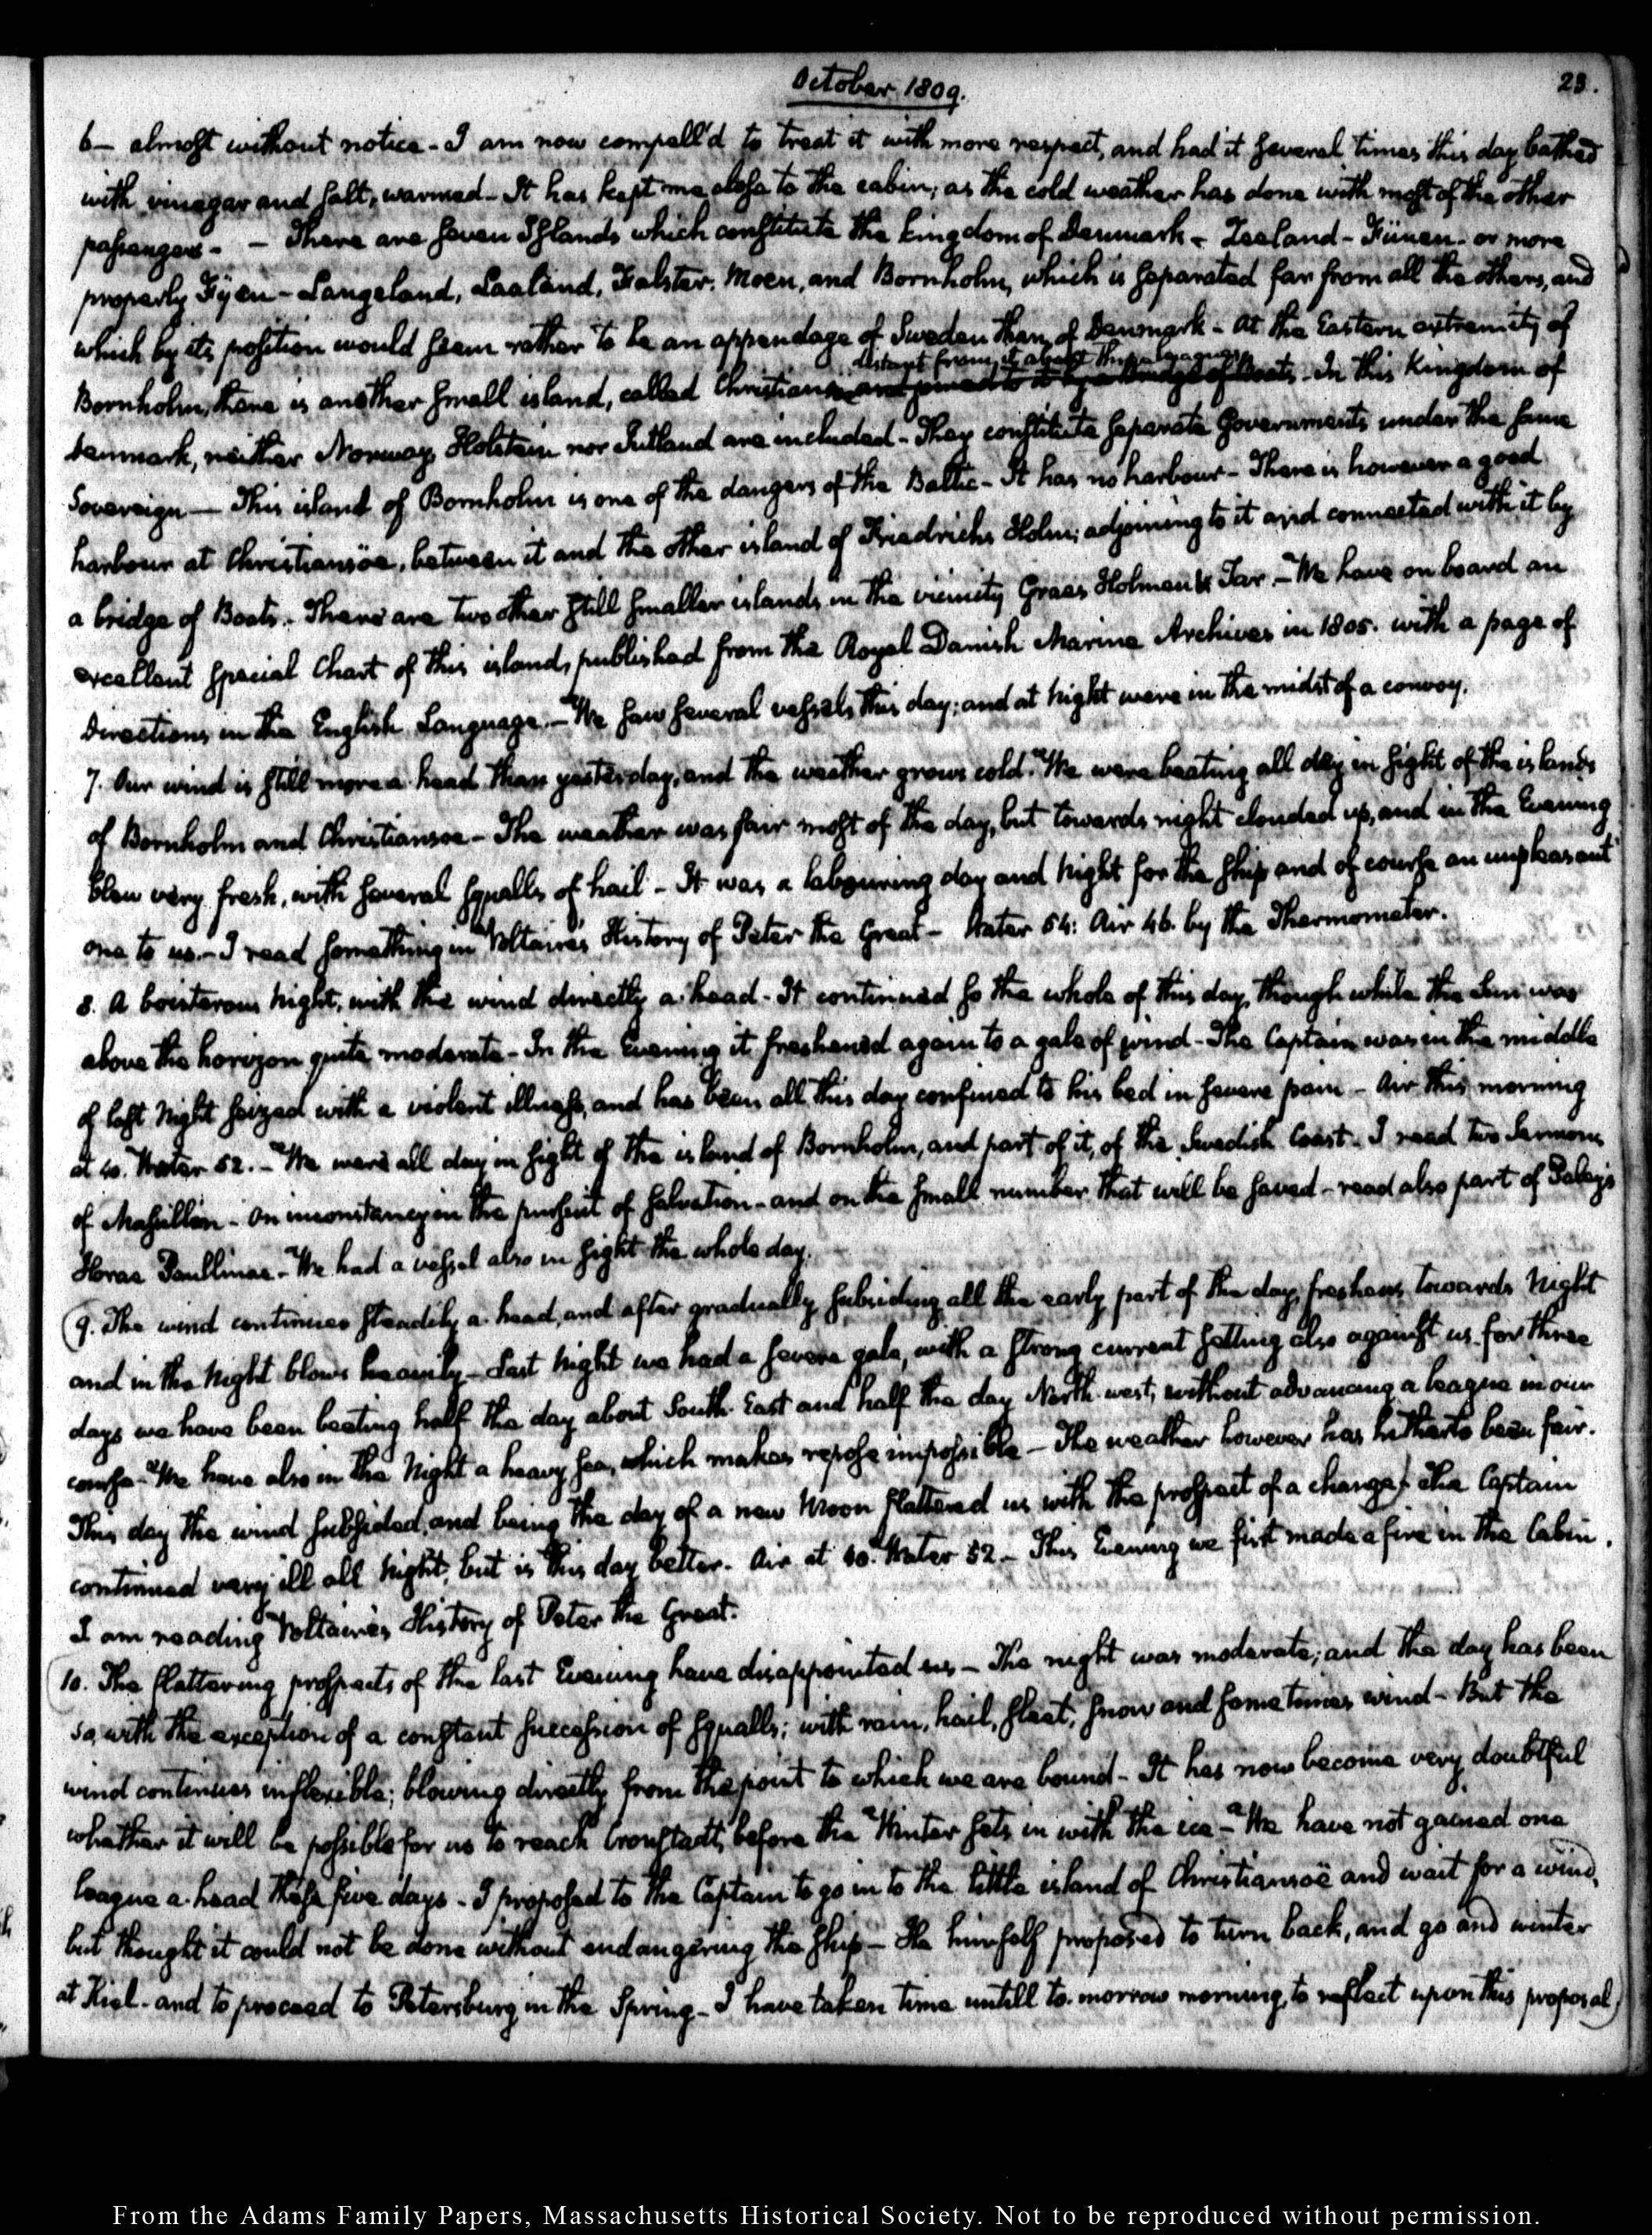 October 1809.
23.
6— almost without notice - I am now compell'd to treat it with more respect, and had it several times this day bathed
with vinegar and salt, warmed - It has kept me close to the cabin; as the cold weather has done with most of the other
passengers - — There are seven Islands which constitute the kingdom of Denmark - Zeeland - Fünen - or more
properly Fÿen - Langeland, Laaland, Falster, Moen, and Bornholm, which is separated far from all the others, and
which by its position would seem rather to be an appendage of Sweden than of Denmark - At the Eastern extremity of
distant from it about three leagues
Bornholm, there is another small island, called Christiansoe and joined to it by a bridge of Boats - In this Kingdom of
Denmark, neither Norway, Holstein nor Jutland are included - They constitute separate Governments under the same
Sovereign — This island of Bornholm is one of the dangers of the Baltic - It has no harbour - There is however a good
harbour at Christiansöe, between it and the other island of Friedrichs Holm; adjoining to it and connected with it by
a bridge of Boats - There are two other still smaller islands in the vicinity Graas Holmen & Tar. - We have on board an
excellent special Chart of this island, published from the Royal Danish Marine Archives in 1805. with a page of
Directions in the English Language. - We saw several vessels this day; and at Night were in the midst of a convoy.
7. Our wind is still more a-head than yesterday, and the weather grows cold. We were beating all day in sight of the islands
of Bornholm and Christiansoe - The weather was fair most of the day, but towards night clouded up, and in the Evening
blew very fresh, with several squalls of hail - It was a labouring day and Night for the ship and of course an unpleasant
one to us. - I read something in Voltaire's History of Peter the Great - Water 54: Air 46. by the Thermometer.
8. A boisterous Night, with the wind directly a-head - It continued so the whole of this day, though while the Sun was
above the horizon quite moderate - In the Evening it freshened again to a gale of wind - The Captain was in the middle
of last Night seized with a violent illness, and has been all this day confined to his bed in severe pain - Air this morning
at 40. Water 52. - We were all day in sight of the island of Bornholm, and part of it, of the Swedish Coast - I read two Sermons
of Massillon - On inconstancy in the pursuit of salvation - and on the small number that will be saved - read also part of Paley's
Horae Paullinae. - We had a vessel also in sight the whole day.
9. The wind continues steadily a-head, and after gradually subsiding all the early part of the day, freshens towards Night
and in the Night blows heavily - Last Night we had a severe gale, with a strong current setting also against us. for three
days we have been beating half the day about South-East and half the day North-west, without advancing a league in our
course - We have also in the Night a heavy sea, which makes repose impossible - The weather however has hitherto been fair.
This day the wind subsided, and being the day of a new Moon flattered us with the prospect of a change. The Captain
continued very ill all Night, but is this day better. Air at 40. Water 52 - This Evening we first made a fire in the Cabin.
I am reading Voltaire's History of Peter the Great.
10. The flattering prospects of the last Evening have disappointed us - The night was moderate; and the day has been
so, with the exception of a constant succession of squalls; with rain, hail, sleet, snow and sometimes wind - But the
wind continues inflexible; blowing directly from the point to which we are bound - It has now become very doubtful
whether it will be possible for us to reach Cronstadt, before the Winter sets in with the ice - We have not gained one
league a-head these five days - I proposed to the Captain to go in to the little island of Christiansöe and wait for a wind,
but thought it could not be done without endangering the ship - He himself proposed to turn back, and go and winter
at Kiel - and to proceed to Petersburg in the Spring - I have taken time untill to-morrow morning, to reflect upon this proposal
From the Adams Family Papers, Massachusetts Historical Society. Not to be reproduced without permission.